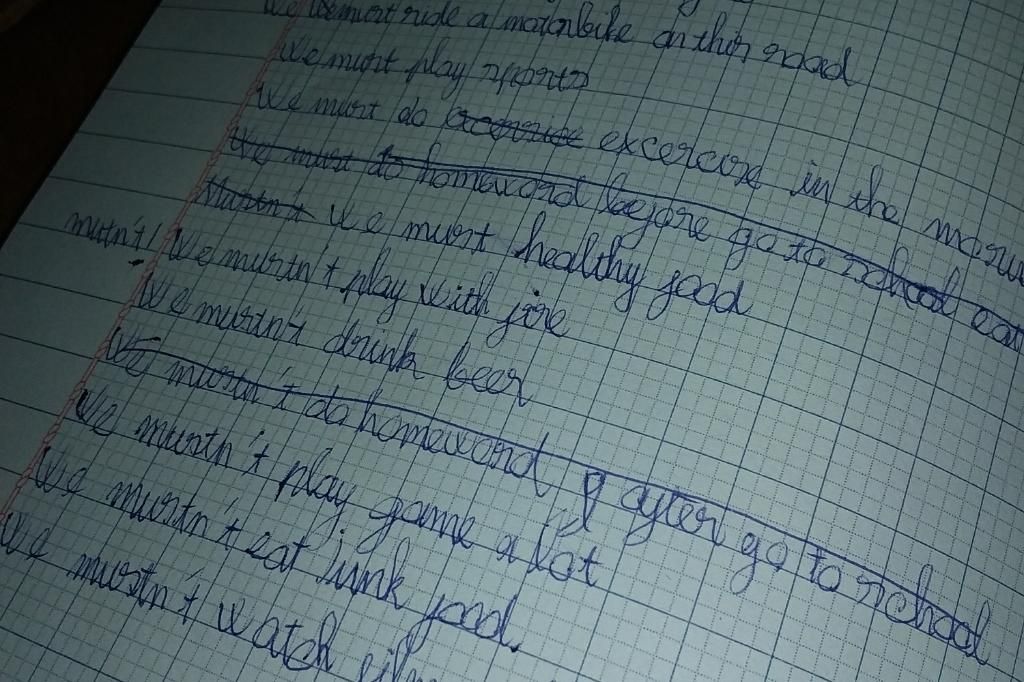 We must ride a motorbike on this road
We must play sports
We must do excercise excercise in the
We must do homeword before go to school eat
Mustn't We must healthy food
mutn't! We mustn't play with fire
We mustn't drink beer
We mustn't do homeword after go to school
We mustn't play game a lot
We mustn't eat junk food.
We mustn't watch